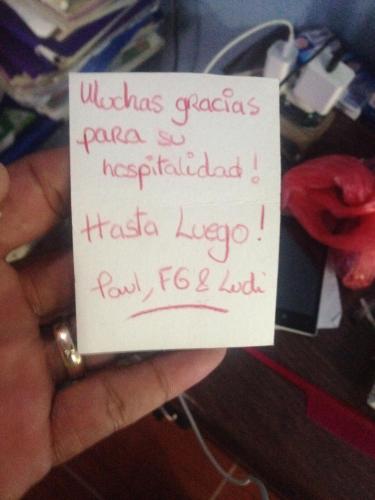 Muchas gracias
para su
hospitalidad!
Hasta Luego!
Paul, FG & Ludi